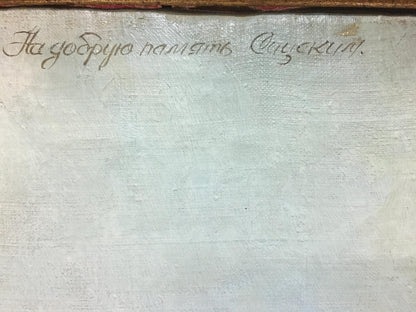 На добрую память Сацским.